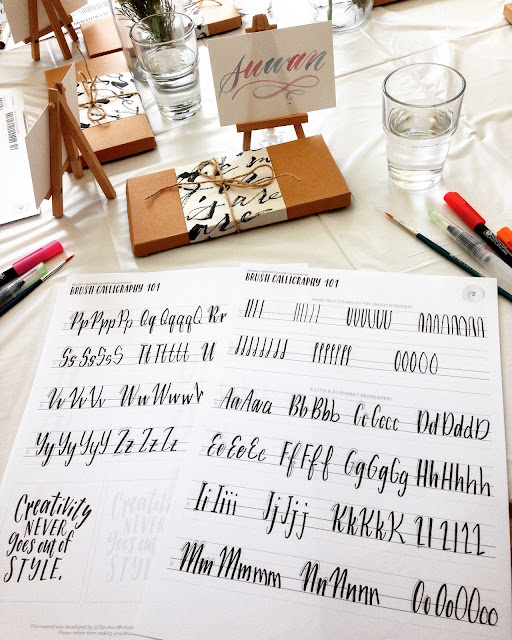 suwan
BRUSH CALLIGRAPHY 101
Pp Pp pp Pp Qq Qqqq Q Rr
Ss Ss S s S Tt Tttt U
Vv Vv Vv Ww Wwww
Yy Yy Yy Y Zz Zz Zz
Creativity
NEVER
goes out of
STYLE.
Creativity
NEVER
goes out of
STYLE.
BRUSH CALLIGRAPHY 101
2
A LITTLE ALPHABET REFRESHER!
Aa Aa a Bb Bb Bb Cc Cc cc Dd Dd d D
Ee Ee Ec Ff Ff f Gg Gg Gg Hh Hh hh
Ii Ii ii Jj Jj jj Kk Kk K Ll Ll Ll
Mm Mm mm Nn Nn nn Oo Oo Oo